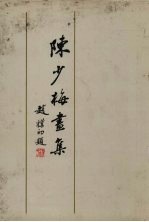 陳少梅畫集
趙樸初題